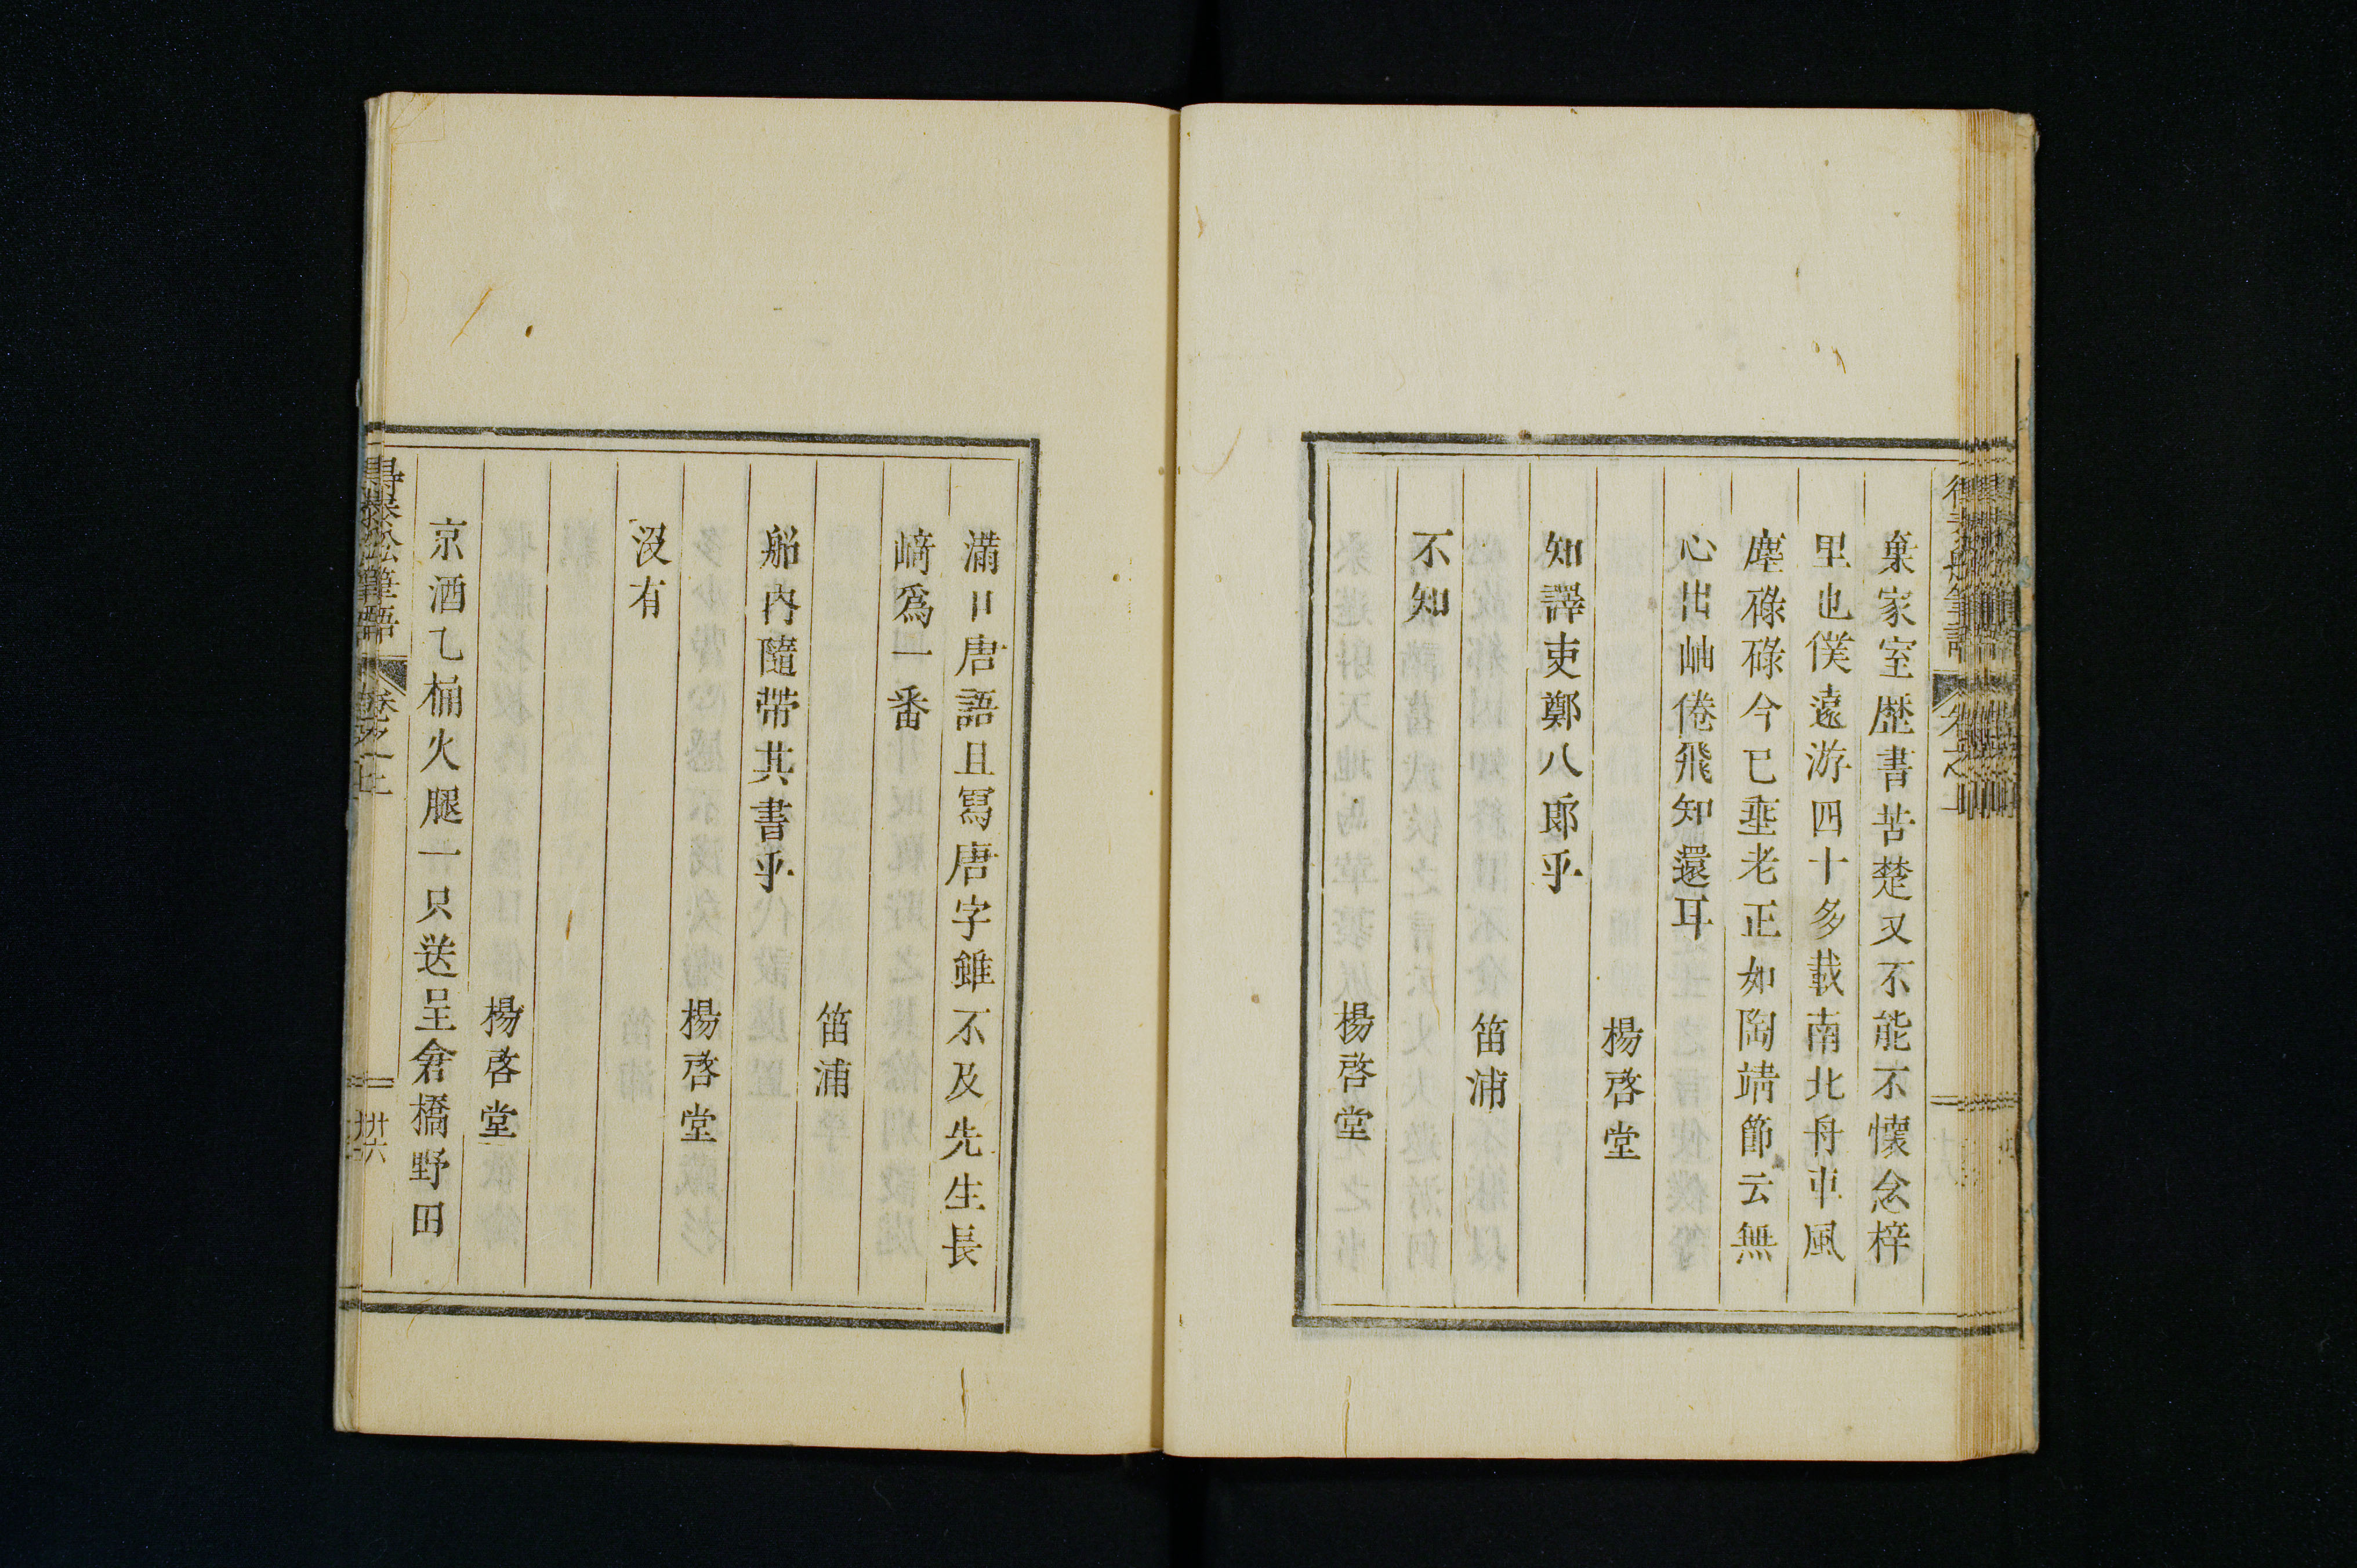 棄家室歴書苦楚又不能不懷念梓
里也僕遠游四十多載南北舟車風
塵碌碌今已垂老正如陶靖節云無
心出岫倦飛知還耳
楊啓堂
知譯吏鄭八郎乎
笛浦
不知
楊啓堂
滿口唐語且寫唐字雖不及先生長
﨑爲一番
笛浦
船内隨帶其書乎
楊啓堂
没有
楊啓堂
京酒乙桶火腿一只送呈倉橋野田
得泰船筆語
卷之上
卅六